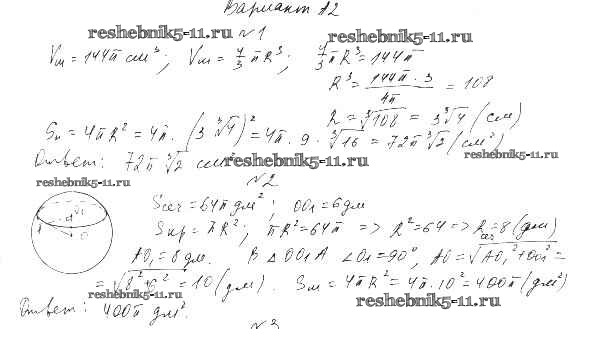 Вариант А2
reshebnik5-11.ru №1 reshebnik5-11.ru
Vш = 144π см³; Vш = 4/3 πR³; 4/3 πR³ = 144π
R³ = 144π · 3 / 4π = 108
R = ∛108 = 3∛4 (см)
Sп = 4πR² = 4π · (3∛4)² = 4π · 9 · ∛16 = 72π∛2 (см²)
Ответ: 72π∛2 см² reshebnik5-11.ru reshebnik5-11.ru
reshebnik5-11.ru №2
Sсеч = 64π дм²; ОО1 = 6 дм
Sкр = πR²; πR² = 64π => R² = 64 => Rсеч = 8 (дм)
АО1 = 8 дм. В ΔОО1А ∠О1 = 90°, АО = √АО1² + ОО1² =
= √8² + 6² = 10 (дм). Sш = 4πR² = 4π · 10² = 400π (дм²)
reshebnik5-11.ru reshebnik5-11.ru
Ответ: 400π дм².
№3